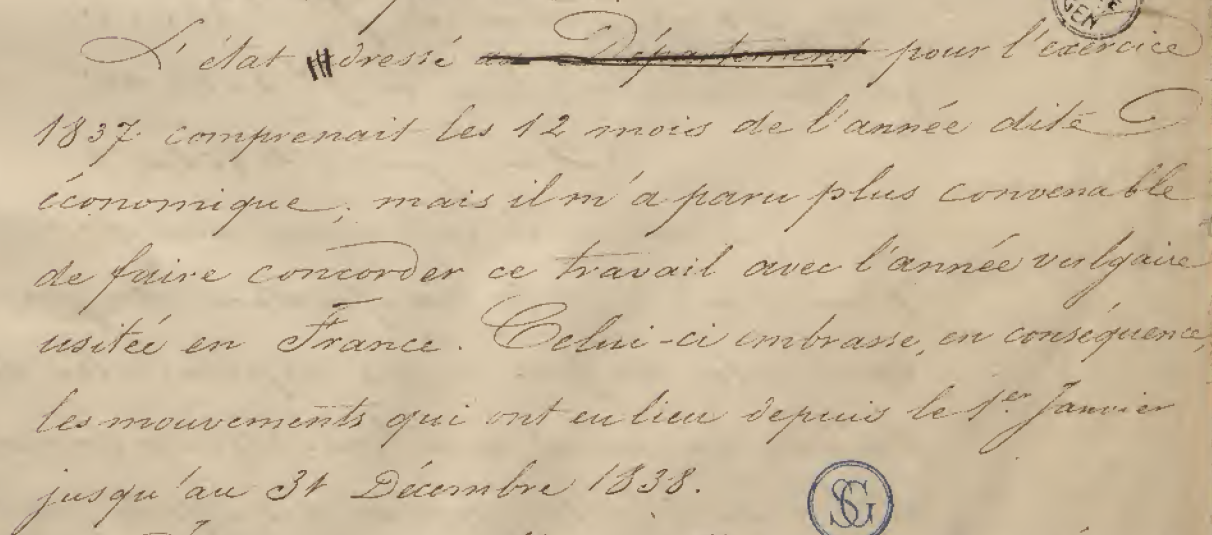 L'état dressé au Département pour l'exercice
1837 comprenait les 12 mois de l'année dite
économique; mais il m'a paru plus convenable
de faire concorder ce travail avec l'année vulgaire
usitée en France. Celui-ci embrasse, en conséquence,
les mouvements qui ont eu lieu depuis le 1er Janvier
jusqu'au 31 Décembre 1838.
SG
GEN